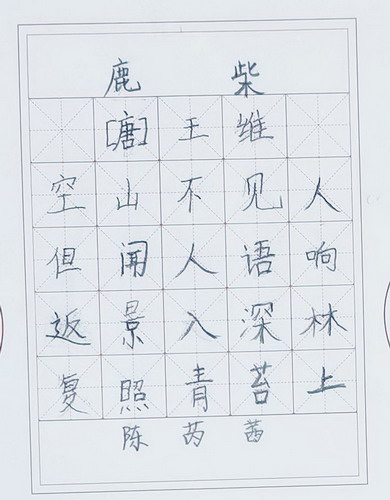 鹿柴
[唐]王维
空山不见人
但闻人语响
返景入深林
复照青苔上
陈芮茜